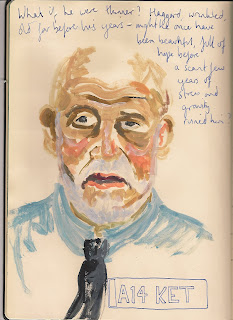 What if he were thinner? Haggard, wrinkled,
old far before his years - might he once have
been beautiful, full of
hope before
a scant few
years of
stress and
gravity
ruined him?
A14 KET